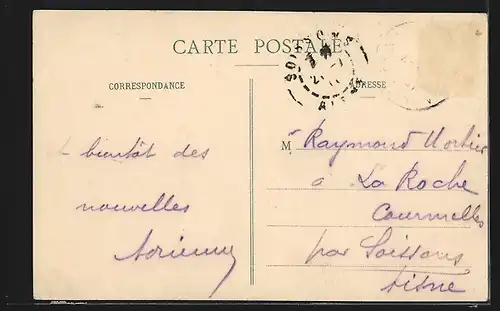 CARTE POSTALE
CORRESPONDANCE
ADRESSE
SOISSONS
AISNE
a bientôt des
nouvelles
Adrienne
M Raymond Mortier
a La Roche
Courmelles
par Soissons
Aisne